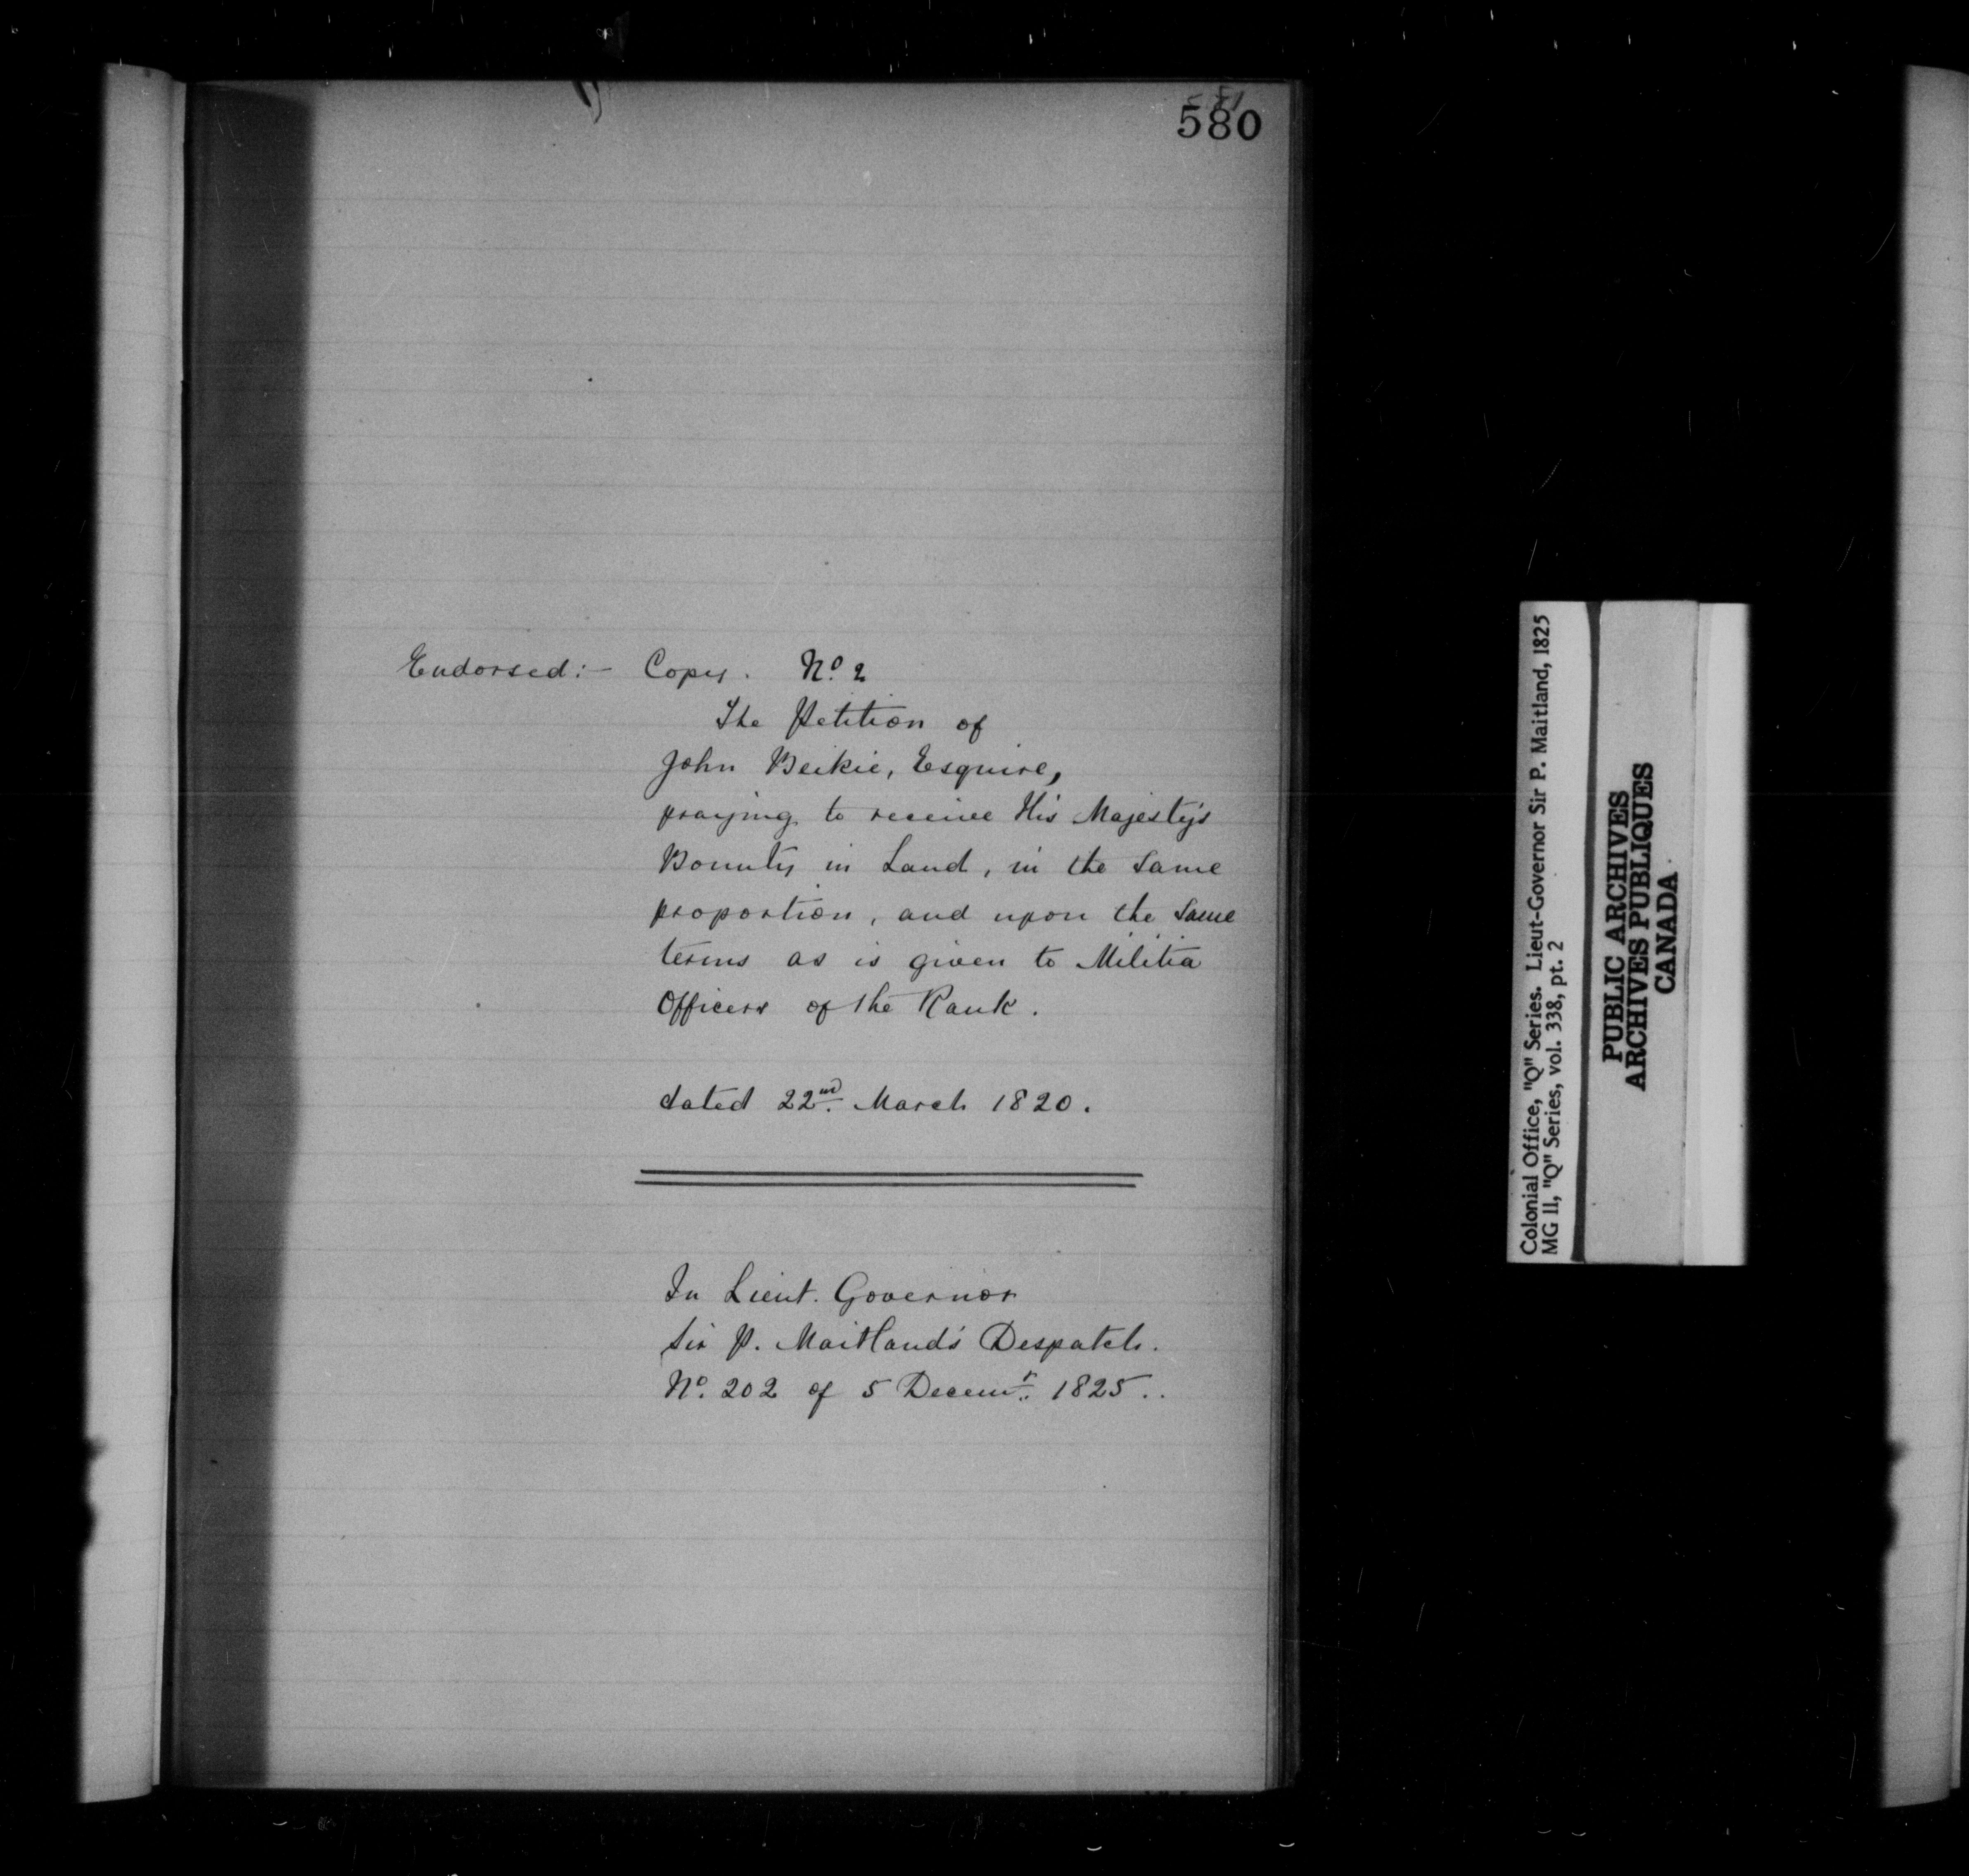 580
Endorsed:- Copy. Nº. 2
The Petition of
John Beikie, Esquire,
praying to receive His Majesty's
Bounty in Land, in the same
proportion, and upon the same
terms as is given to Militia
Officers of the Rank.
dated 22nd. March 1820.
In Lieut. Governor
Sir P. Maitland's Despatch.
Nº. 202 of 5 Decemr. 1825..
Colonial Office, "Q" Series. Lieut-Governor Sir P. Maitland, 1825
MG 11, "Q" Series, vol. 338, pt. 2
PUBLIC ARCHIVES
ARCHIVES PUBLIQUES
CANADA